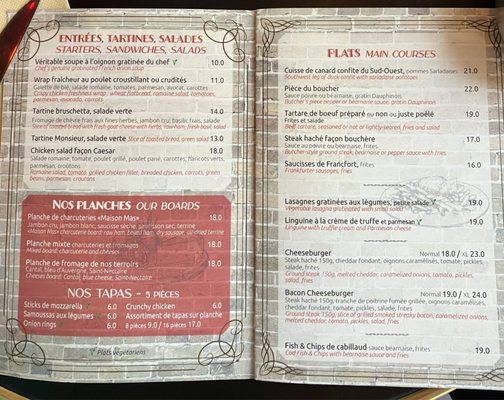 ENTRÉES, TARTINES, SALADES
STARTERS, SANDWICHES, SALADS
Véritable soupe à l'oignon gratinée du chef 10.0
Chef's genuine gratinated French onion soup
Wrap fraîcheur au poulet croustillant ou crudités 11.0
Galette de blé, salade romaine, tomates, parmesan, avocat, carottes
Crispy chicken/freshness wrap: wheat flatbread, romaine salad, tomatoes,
parmesan, avocado, carrots
Tartine bruschetta, salade verte 14.0
Fromage de chèvre frais aux fines herbes, jambon cru, basilic frais, salade
Slice of toasted bread with fresh goat cheese with herbs, raw ham, fresh basil, salad
Tartine Monsieur, salade verte Slice of toasted bread, green salad 13.0
Chicken salad façon Caesar 18.0
Salade romaine, tomate, poulet grillé, poulet pané, carottes, haricots verts,
parmesan, croutons
Romaine salad, tomato, grilled chicken fillet, breaded chicken, carrots, green
beans, parmesan, croutons
NOS PLANCHES OUR BOARDS
Planche de charcuteries «Maison Mas» 18.0
Jambon cru, jambon blanc, saucisse sèche, saucisson sec, terrine
«Maison Mas» charcuterie board: raw ham, boiled ham, dry sausage, dried terrine
Planche mixte charcuteries et fromages 18.0
Mixed board: charcuterie and cheeses
Planche de fromage de nos terroirs 18.0
Cantal, bleu d'Auvergne, Saint-Nectaire
Cheeses board: Cantal, blue cheese, Saint-Nectaire
NOS TAPAS - 5 PIÈCES
Sticks de mozzarella 6.0 Crunchy chicken 6.0
Samoussas aux légumes 6.0 Assortiment de tapas sur planche
Onion rings 6.0 8 pièces 9.0 / 16 pièces 17.0
Plats végétariens
PLATS MAIN COURSES
Cuisse de canard confite du Sud-Ouest, pommes Sarladaises 21.0
Southwest leg of duck confit with sarladaise potatoes
Pièce du boucher 22.0
Sauce poivre ou béarnaise, gratin Dauphinois
Butcher's piece pepper or béarnaise sauce, gratin Dauphinois
Tartare de boeuf préparé ou non ou juste poêlé 19.0
Frites et salade
Beef tartare, seasoned or not or lightly-seared, fries and salad
Steak haché façon bouchère 17.0
Sauce au poivre ou béarnaise, frites
Butcher-style ground beef, béarnaise or pepper sauce with fries
Saucisses de Francfort, frites 16.0
Frankfurter sausages, fries
Lasagnes gratinées aux légumes, petite salade 19.0
Vegetable lasagna gratinated with small salad
Linguine à la crème de truffe et parmesan 19.0
Linguine with truffle cream and Parmesan cheese
Cheeseburger Normal 18.0 / XL 23.0
Steak haché 150g, cheddar fondant, oignons caramélisés, tomate, pickles,
salade, frites
Ground steak 150g, melted cheddar, caramelized onions, tomato, pickles,
salad, fries
Bacon Cheeseburger Normal 19.0 / XL 24.0
Steak haché 150g, tranche de poitrine fumée grillée, oignons caramélisés,
cheddar fondant, tomate, pickles, salade, frites
Ground steak 150g, slice of grilled smoked streaky bacon, caramelized onions,
melted cheddar, tomato, pickles, salad, fries
Fish & Chips de cabillaud sauce béarnaise, frites 19.0
Cod Fish & Chips with béarnaise sauce and fries